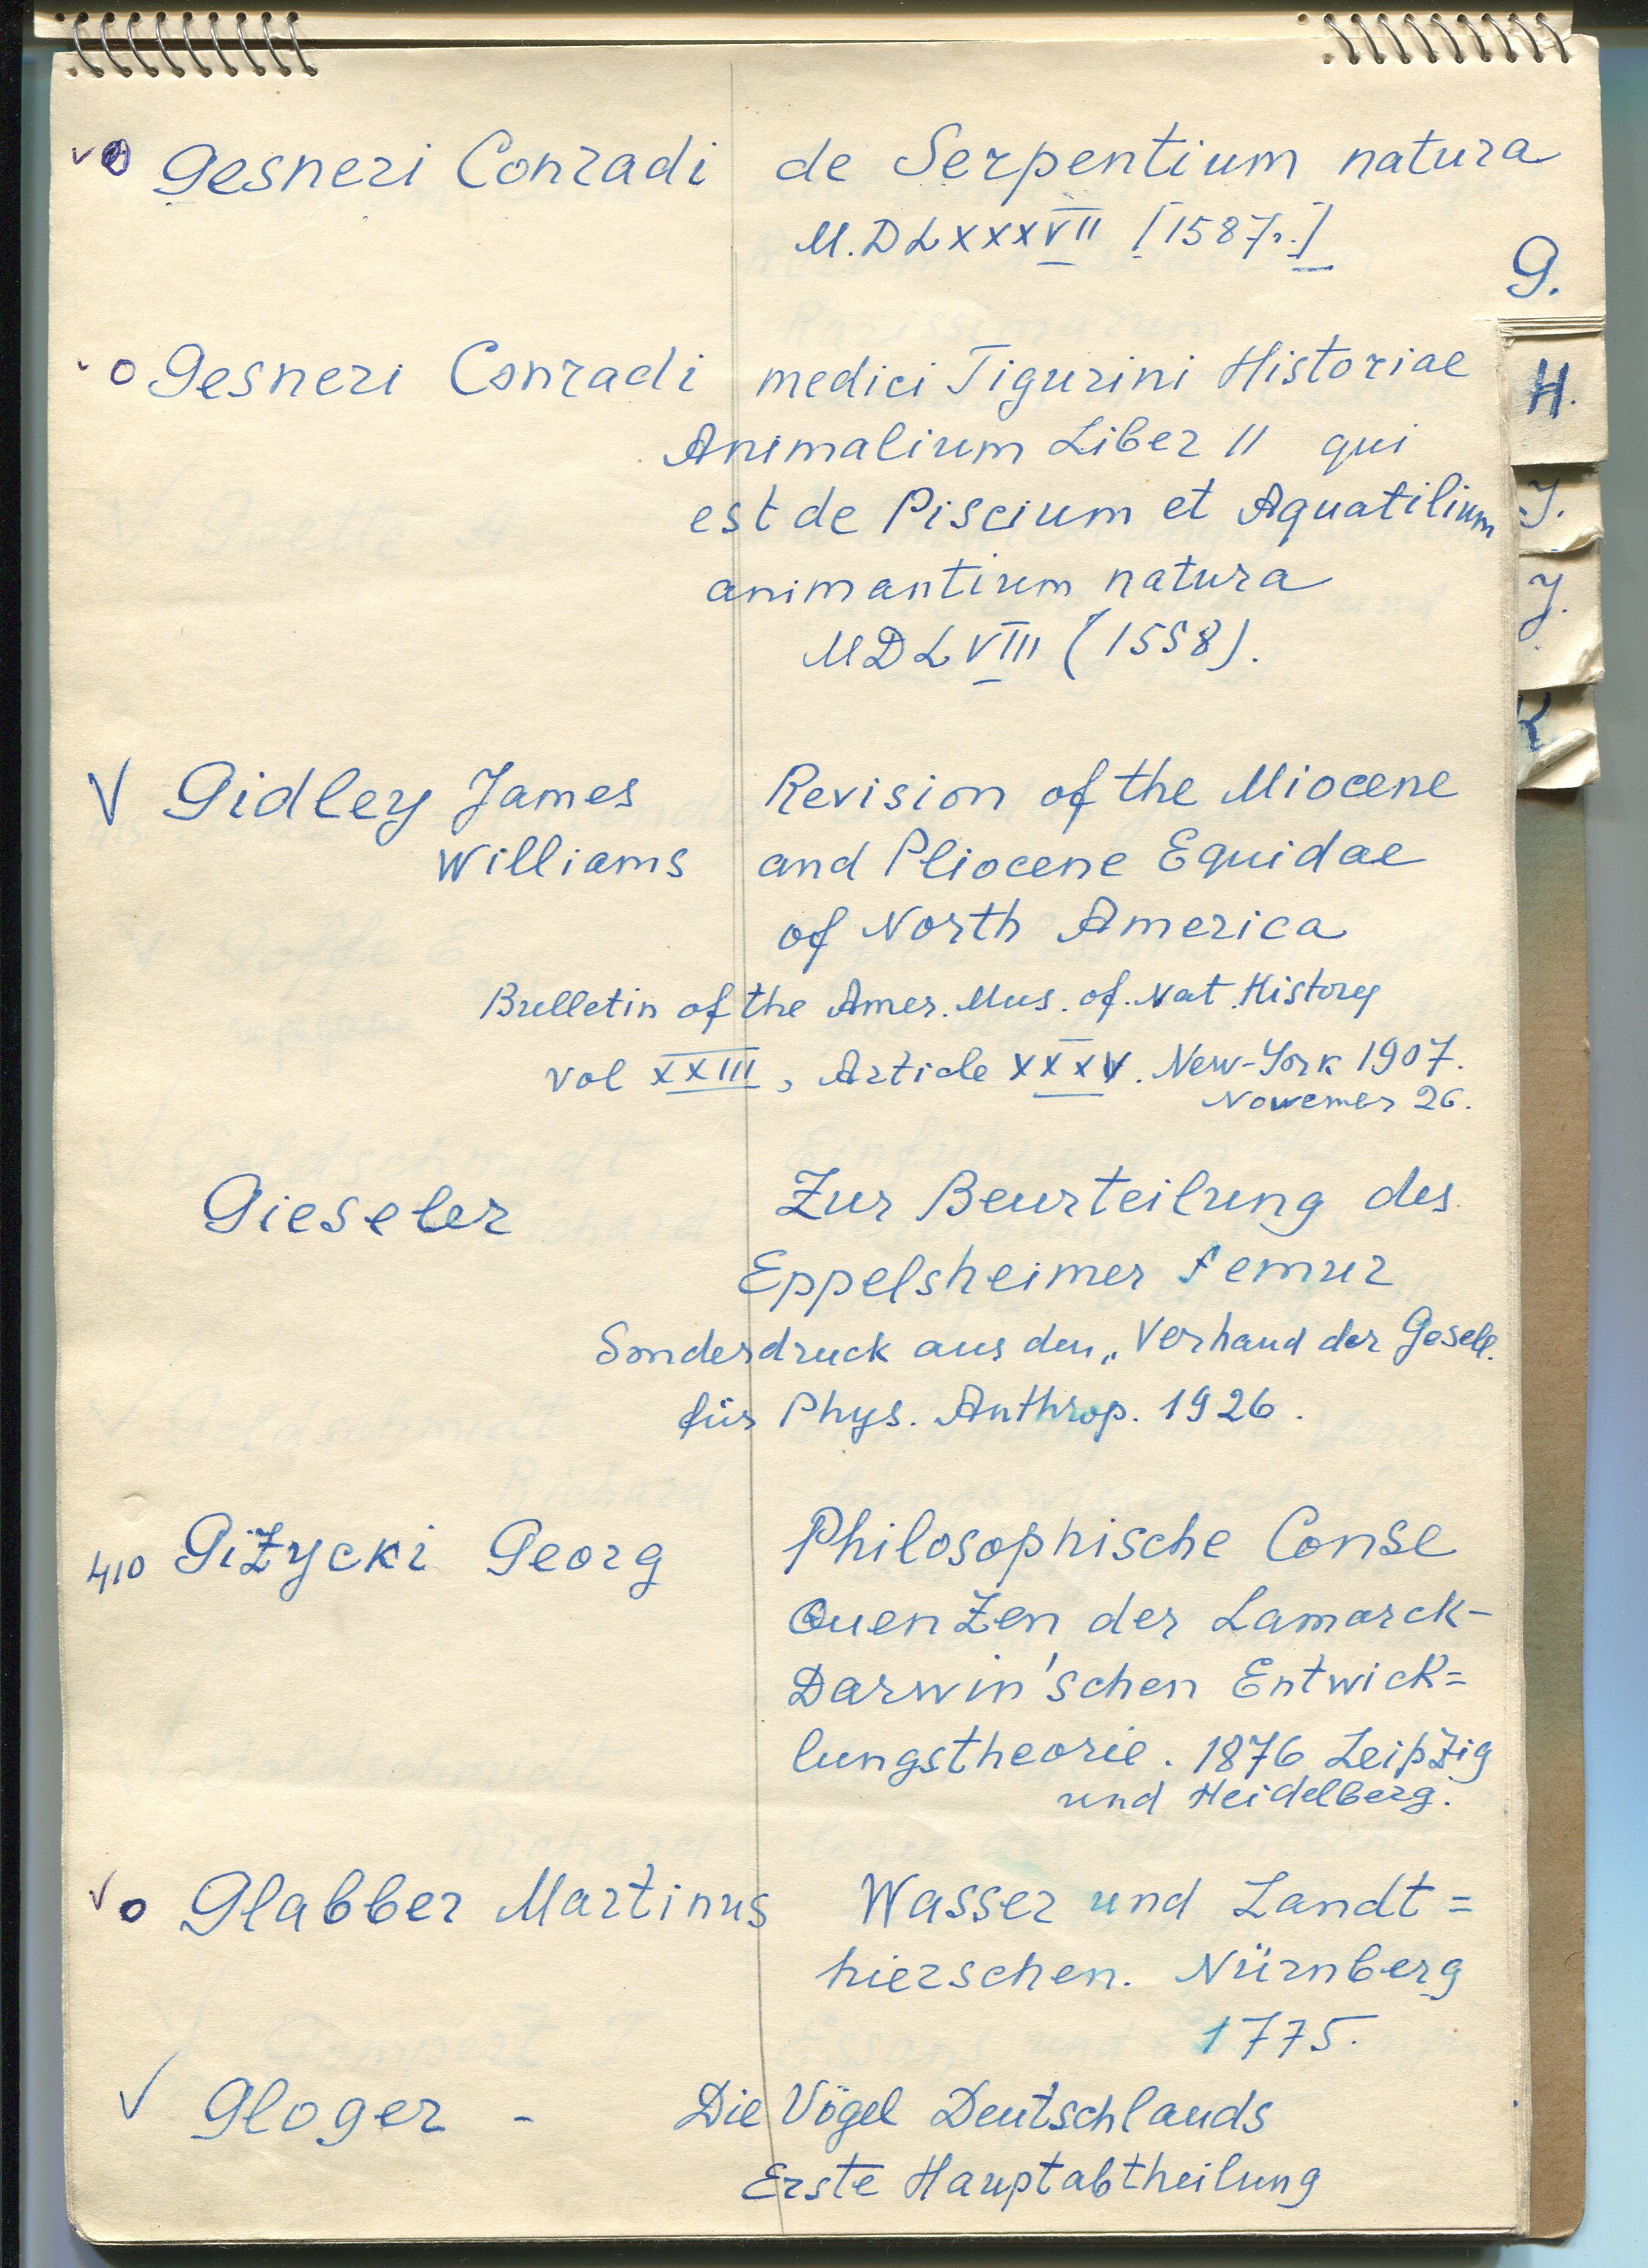 Gesneri Conradi de Serpentium natura
M.DLXXXVII [1587г.]
G.
Gesneri Conradi medici Tigurini Historiae
H.
Animalium Liber II qui
est de Piscium et Aquatilium
J.
animantium natura
J.
MDLVIII (1558).
K
V Gidley James Revision of the Miocene
Williams and Pliocene Equidae
of North America
Bulletin of the Amer. Mus. of. Nat. History
vol XXIII, Article XXXV. New-York 1907.
Nowemer 26.
Gieseler Zur Beurteilung des
Eppelsheimer Femur
Sonderdruck aus den „Verhand der Gesell.
für Phys. Anthrop. 1926.
410 Giżycki Georg Philosophische Conse
Quenzen der Lamarck-
Darwin'schen Entwick=
lungstheorie. 1876 Leipzig
und Heidelberg.
V o Glabber Martinus Wasser und Landt=
hierschen. Nürnberg
1775.
V Gloger - Die Vögel Deutschlands
Erste Hauptabtheilung